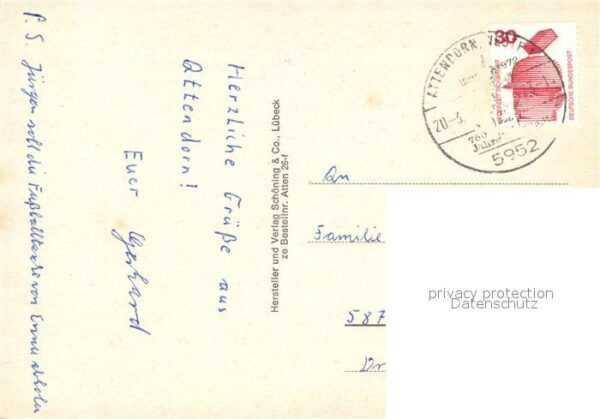 Herzliche Grüße aus
Attendorn!
Euer Gerhard
P. S. Jürgen soll die Fußballtasche von Ennu abholen
Hersteller und Verlag Schöning & Co., Lübeck
ze Bestellnr. Atten 26-f
30
DEUTSCHE BUNDESPOST
ATTENDORN,
1972
20.-3.
750
Jahre
5952
An
Familie
587
Dr
privacy protection
Datenschutz